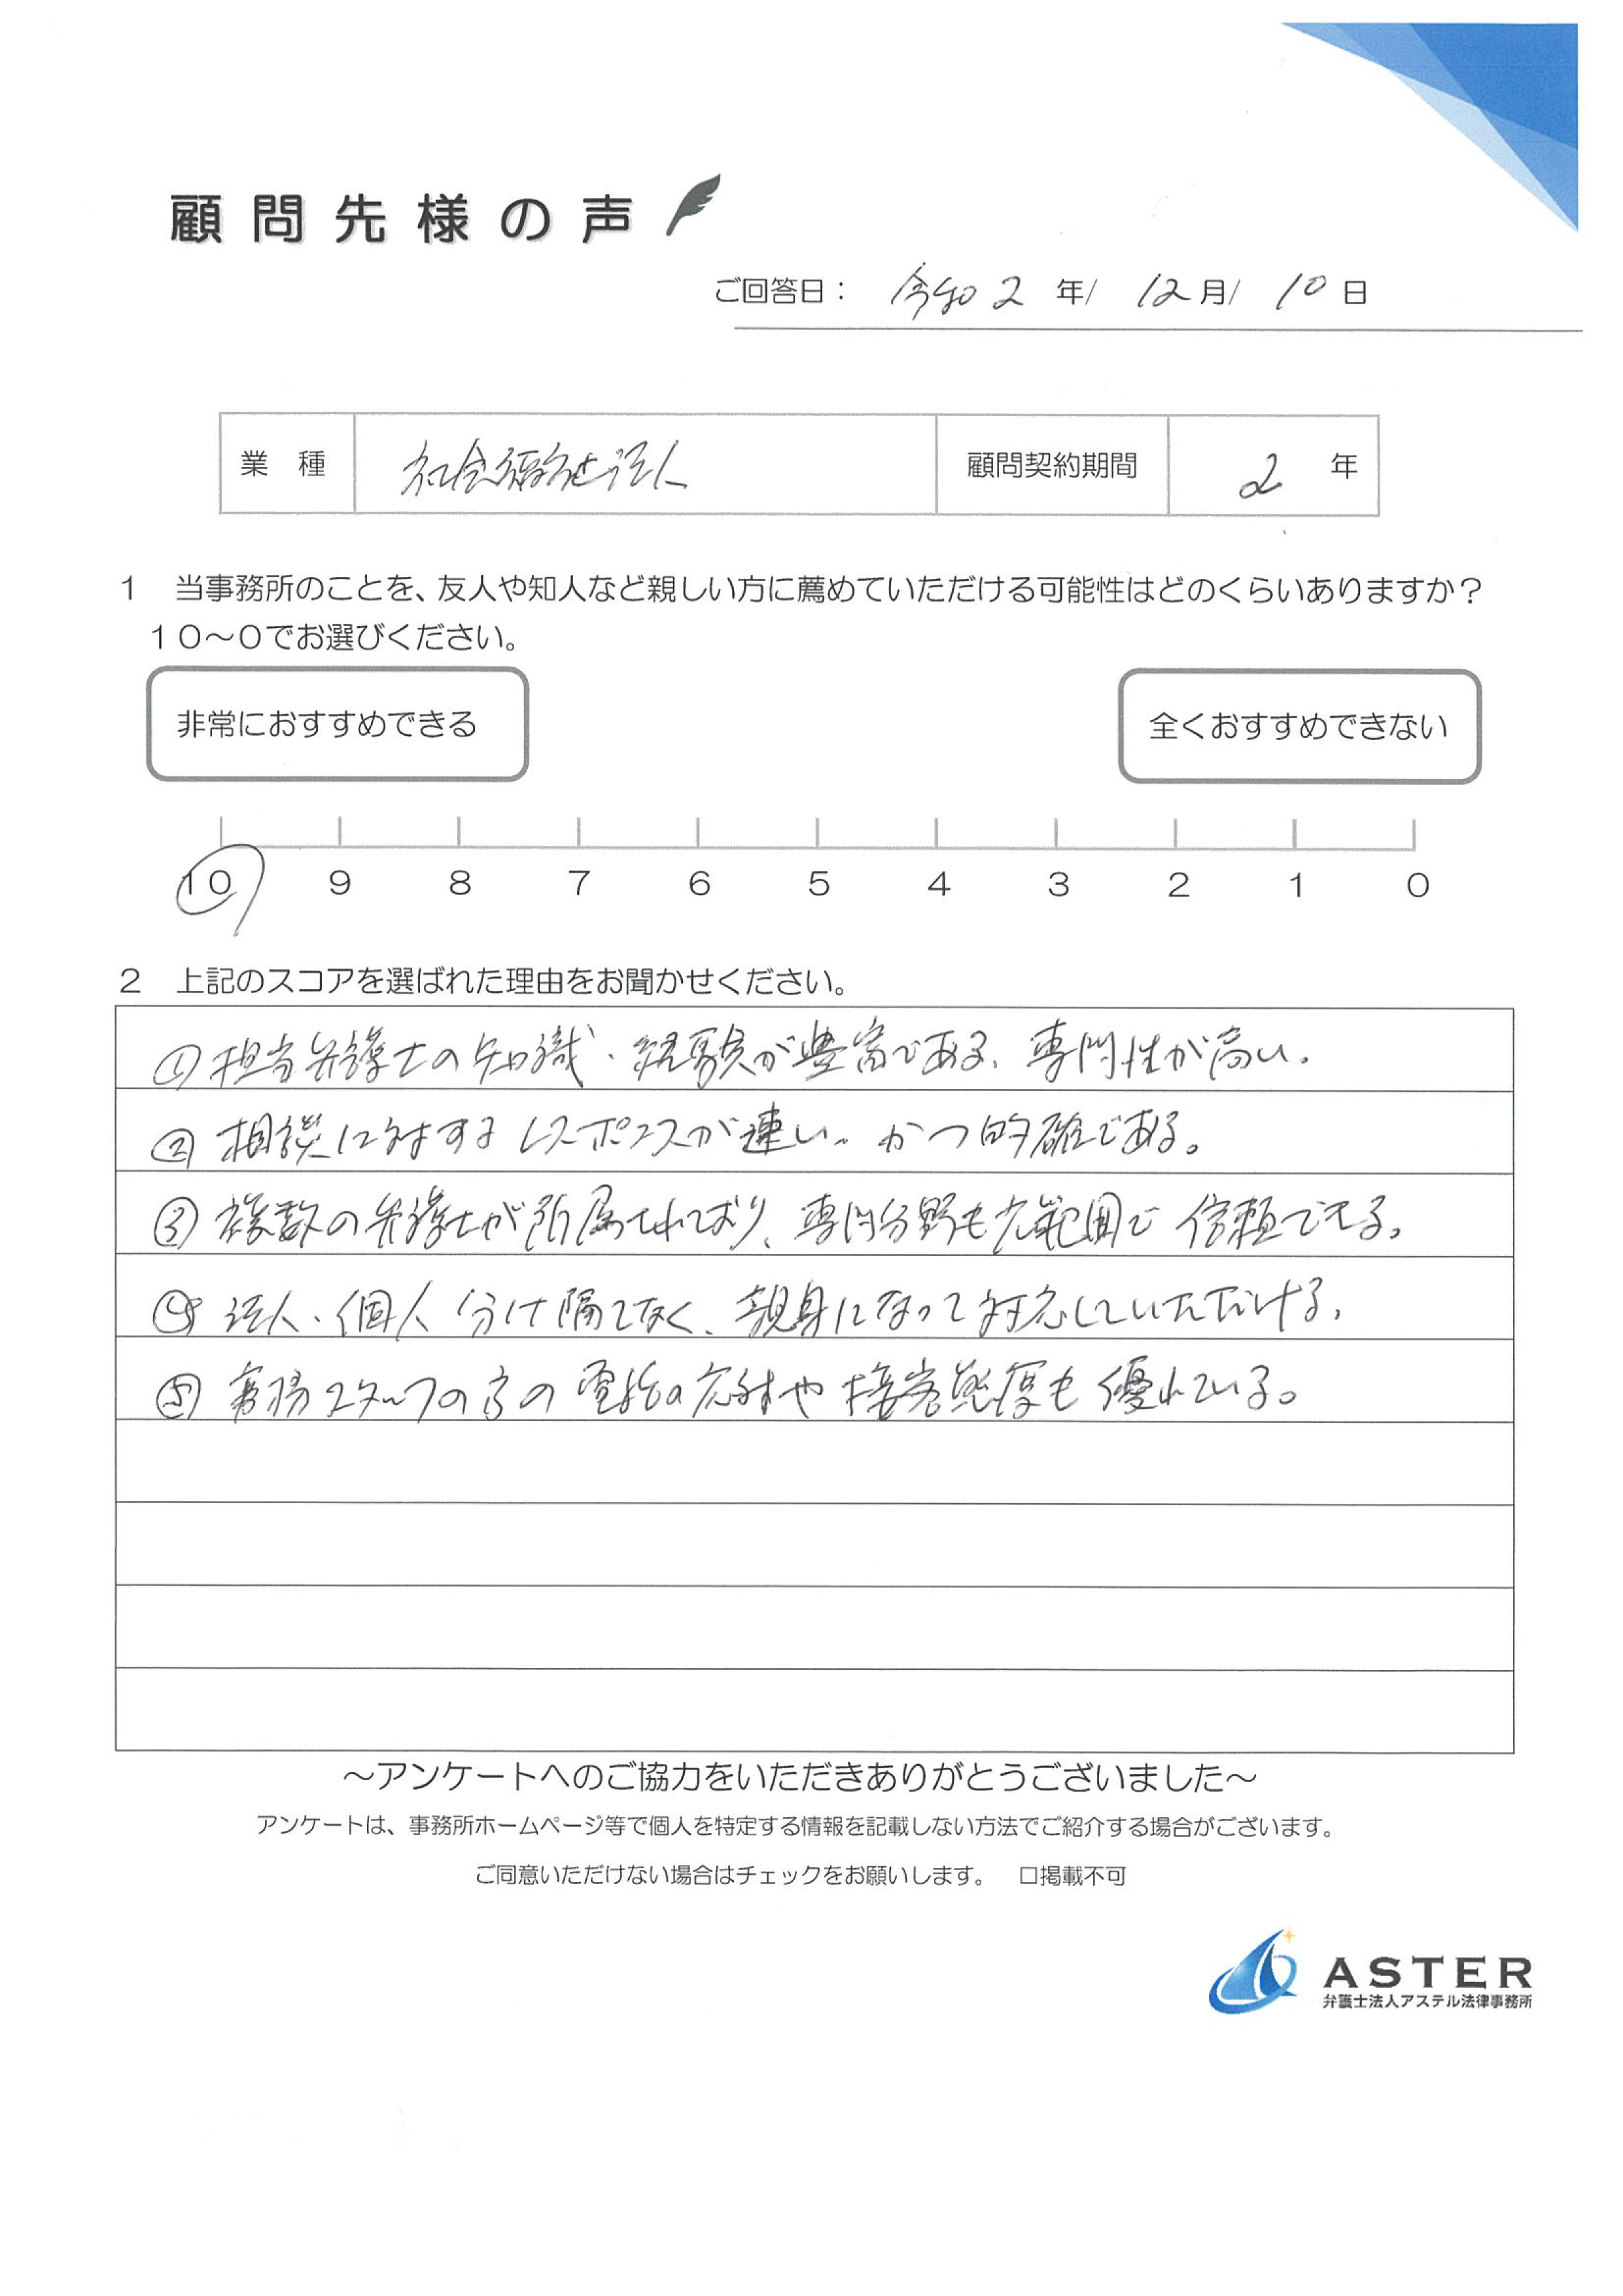 顧問先様の声
ご回答日： 令和2年/ 12月/ 10日
業種 社会福祉法人 顧問契約期間 2年
1 当事務所のことを、友人や知人など親しい方に薦めていただける可能性はどのくらいありますか？
10～0でお選びください。
非常におすすめできる 全くおすすめできない
10 9 8 7 6 5 4 3 2 1 0
2 上記のスコアを選ばれた理由をお聞かせください。
①担当弁護士の知識・経験が豊富である、専門性が高い。
②相談に対するレスポンスが速い。かつ的確である。
③複数の弁護士が所属されており、専門分野も広範囲で信頼できる。
④法人・個人分け隔てなく、親身になって対応していただける。
⑤事務スタッフの方の電話の応対や接客態度も優れている。
～アンケートへのご協力をいただきありがとうございました～
アンケートは、事務所ホームページ等で個人を特定する情報を記載しない方法でご紹介する場合がございます。
ご同意いただけない場合はチェックをお願いします。 □掲載不可
ASTER
弁護士法人アステル法律事務所